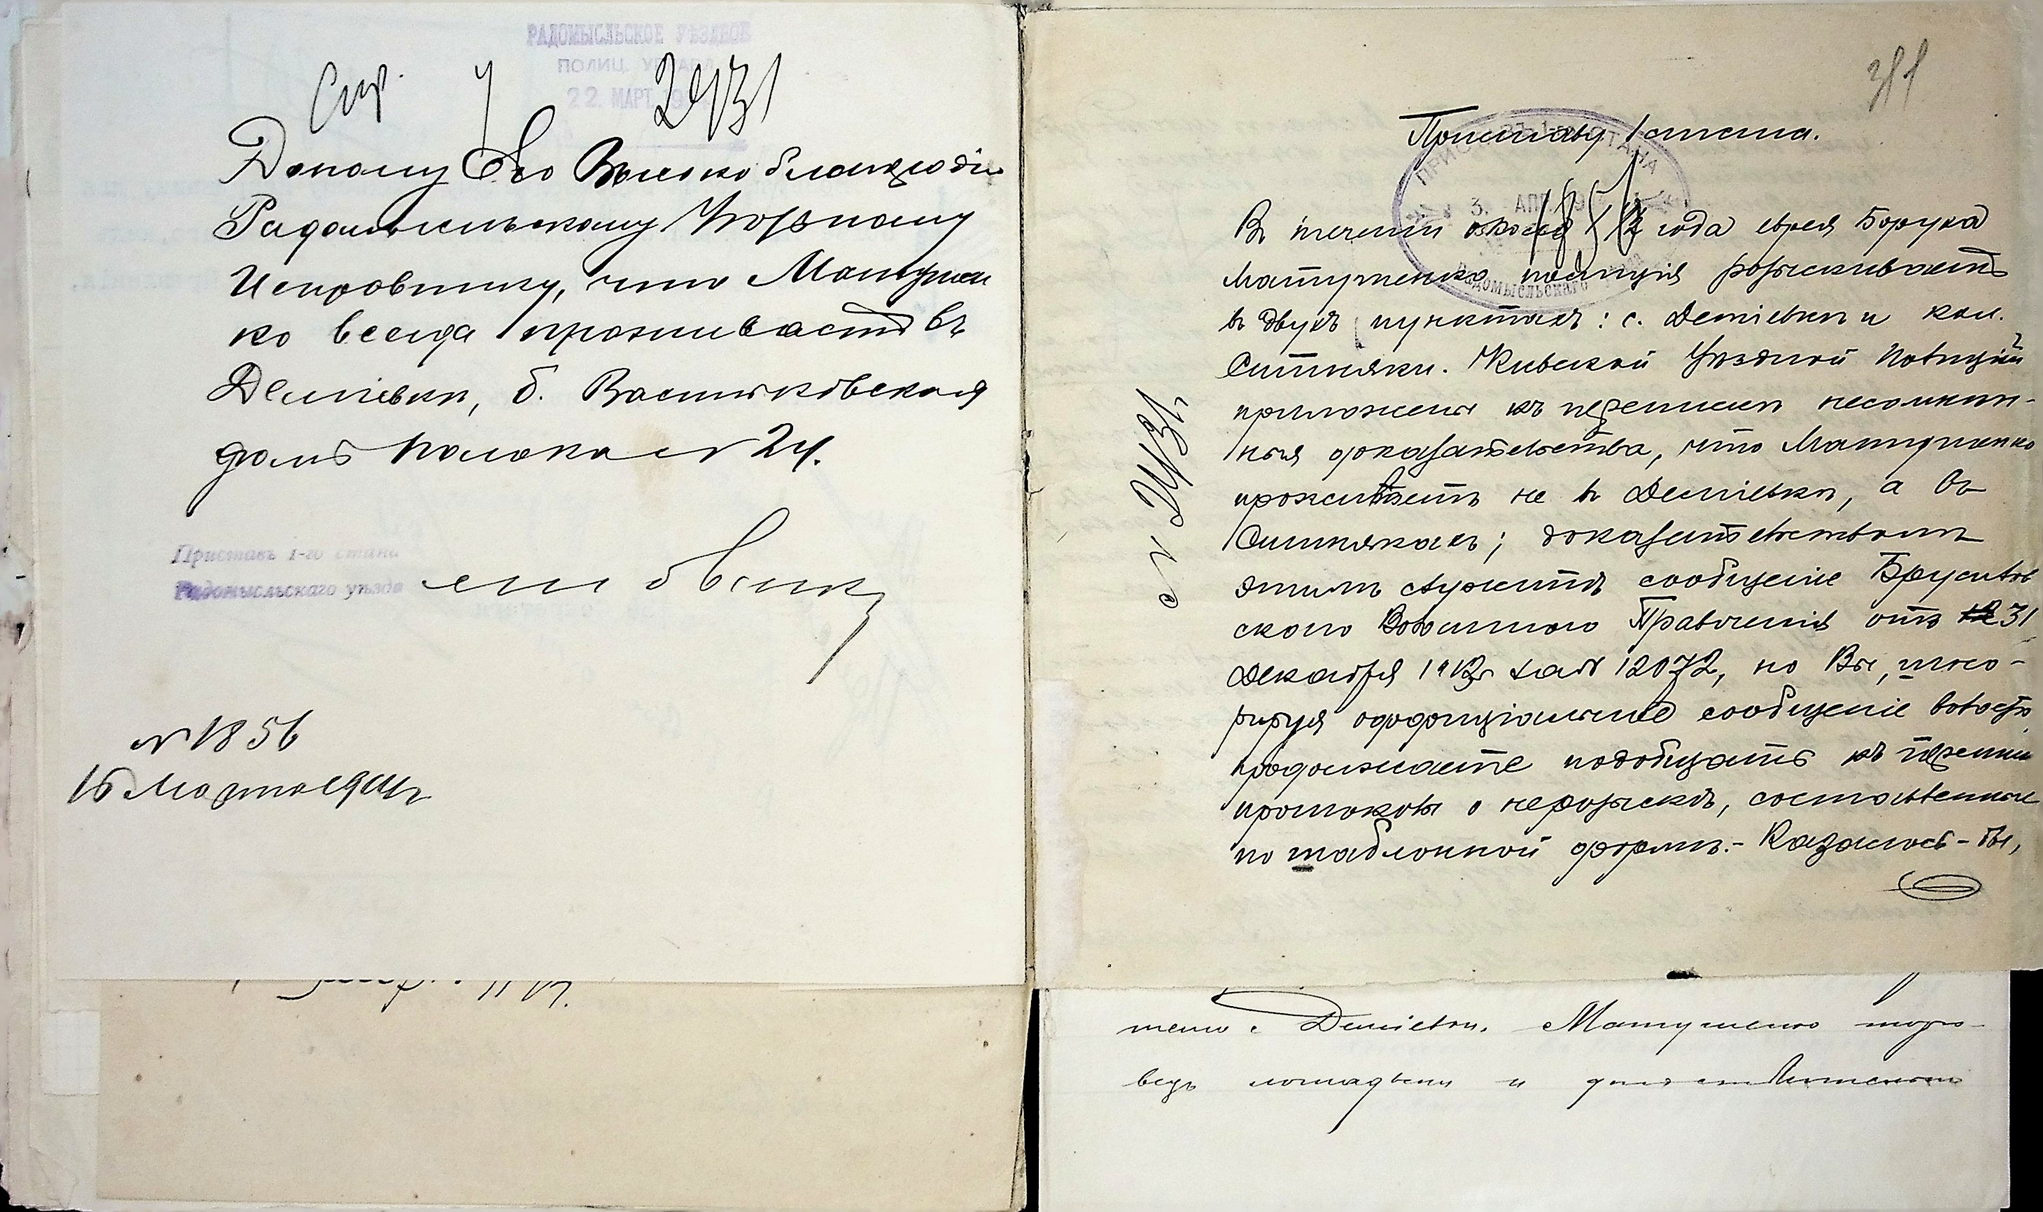 РАДОМЫСЛЬСКОЕ УѢЗДНОЕ
ПОЛИЦ. УПРАВЛ.
22. МАРТ.
Доношу Его Высокоблагородiю
Радомысльскому Уѣздному
Исправнику, что Матушен
ко всегда проживаетъ въ
Демiевкѣ, б. Васильковская
домъ № 24.
Приставъ 1-го стана
Радомысльскаго уѣзда
№ 1856
16 Марта 1914 г.
Приставу 1 стана.
ПРИСТАВЪ 1-ГО СТАНА
3. АПР
РАДОМЫСЛЬСКАГО
В течении около 1½ года еврея Боруха
Матушенко полицiя розыскиваетъ
въ двухъ пунктахъ: с. Демiевки и кол.
Ситняки. Кiевской Уѣздной Полицiей
приложены къ перепискѣ несомнѣн-
ныя доказательства, что Матушенко
проживаетъ не въ Демiевкѣ, а въ
Ситнякахъ; доказательствомъ
этимъ служитъ сообщенiе Брусилов
скаго Волостного Правленiя отъ 31
Декабря 1912 г за № 12072, но Вы, игно-
рируя оффицiальное сообщенiе волости
продолжаете прiобщать къ перепис
протоколы о нерозыскѣ, составленные
по шаблонной формѣ.- Казалось-бы,
№ 2431
с Демiевки. Матушенко торго-
вецъ лошадьми и